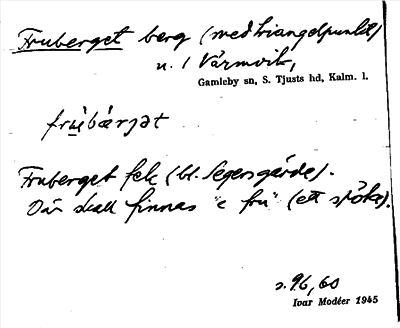 Fruberget berg (med triangelpunkt)
n. / Värmvik,
Gamleby sn, S. Tjusts hd, Kalm. l.
frùbærjət
Fruberget fek (bl. Segersgärde).
Där skall finnas "e fru" (ett spöke).
s. 96, 60
Ivar Modéer 1945